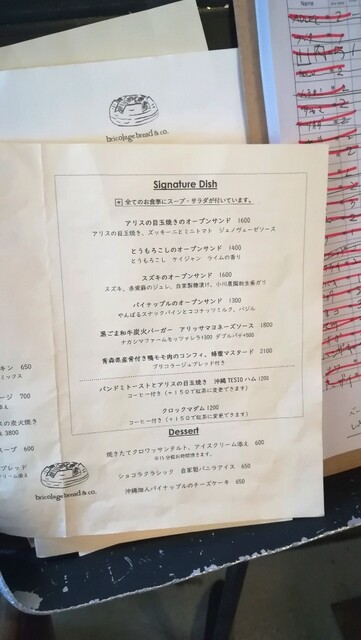 bricolage bread & co.
Signature Dish
＊全てのお食事にスープ・サラダが付いています。
アリスの目玉焼きのオープンサンド 1600
アリスの目玉焼き、ズッキーニとミニトマト ジェノヴェーゼソース
とうもろこしのオープンサンド 1400
とうもろこし ケイジャン ライムの香り
スズキのオープンサンド 1600
パイナップルのオープンサンド 1300
やんばるスナックパインとココナッツミルク、バジル
黒ごま和牛炭火バーガー アリッサマヨネーズソース 1800
ナカシマファームモッツァレラ+300 ダブルパティ+900
青森県産骨付き鴨モモ肉のコンフィ、蜂蜜マスタード 2100
ブリコラージュブレッド付き
パンドミトーストとアリスの目玉焼き 沖縄TESIOハム 1200
コーヒー付き（+150で紅茶に変更できます）
クロックマダム 1200
コーヒー付き（+150で紅茶に変更できます）
Dessert
焼きたてクロワッサンタルト、アイスクリーム添え 600
※15分程お時間頂きます。
ショコラクラシック 自家製バニラアイス 650
沖縄畑人パイナップルのチーズケーキ 650
キン 650
ミックス
ージ 700
添え
スの炭火焼き
3800
スープ 600
ブレッド
bricolage bread & co.
Name